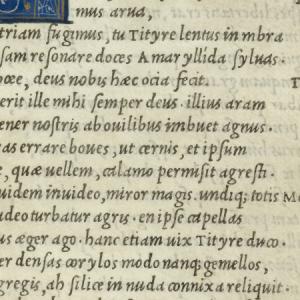 mus arua,
triam fugimus, tu Tityre lentus in mbra
sam resonare doces Amaryllida syluas.
bœe, deus nobis hæc ocia fecit.
erit ille mihi semper deus. illius aram
ener nostris ab ouilibus imbuet agnus.
as errare boues, ut cernis, et ipsum
e, quæ uellem, calamo permisit agresti.
uidem inuideo, miror magis. undiq; totis
udeo turbatur agris. en ipse capellas
us æger ago. hanc etiam uix Tityre duco.
er densas corylos modo nanq; gemellos,
gregis, ah silice in nuda connixa reliquit.
T
Mo